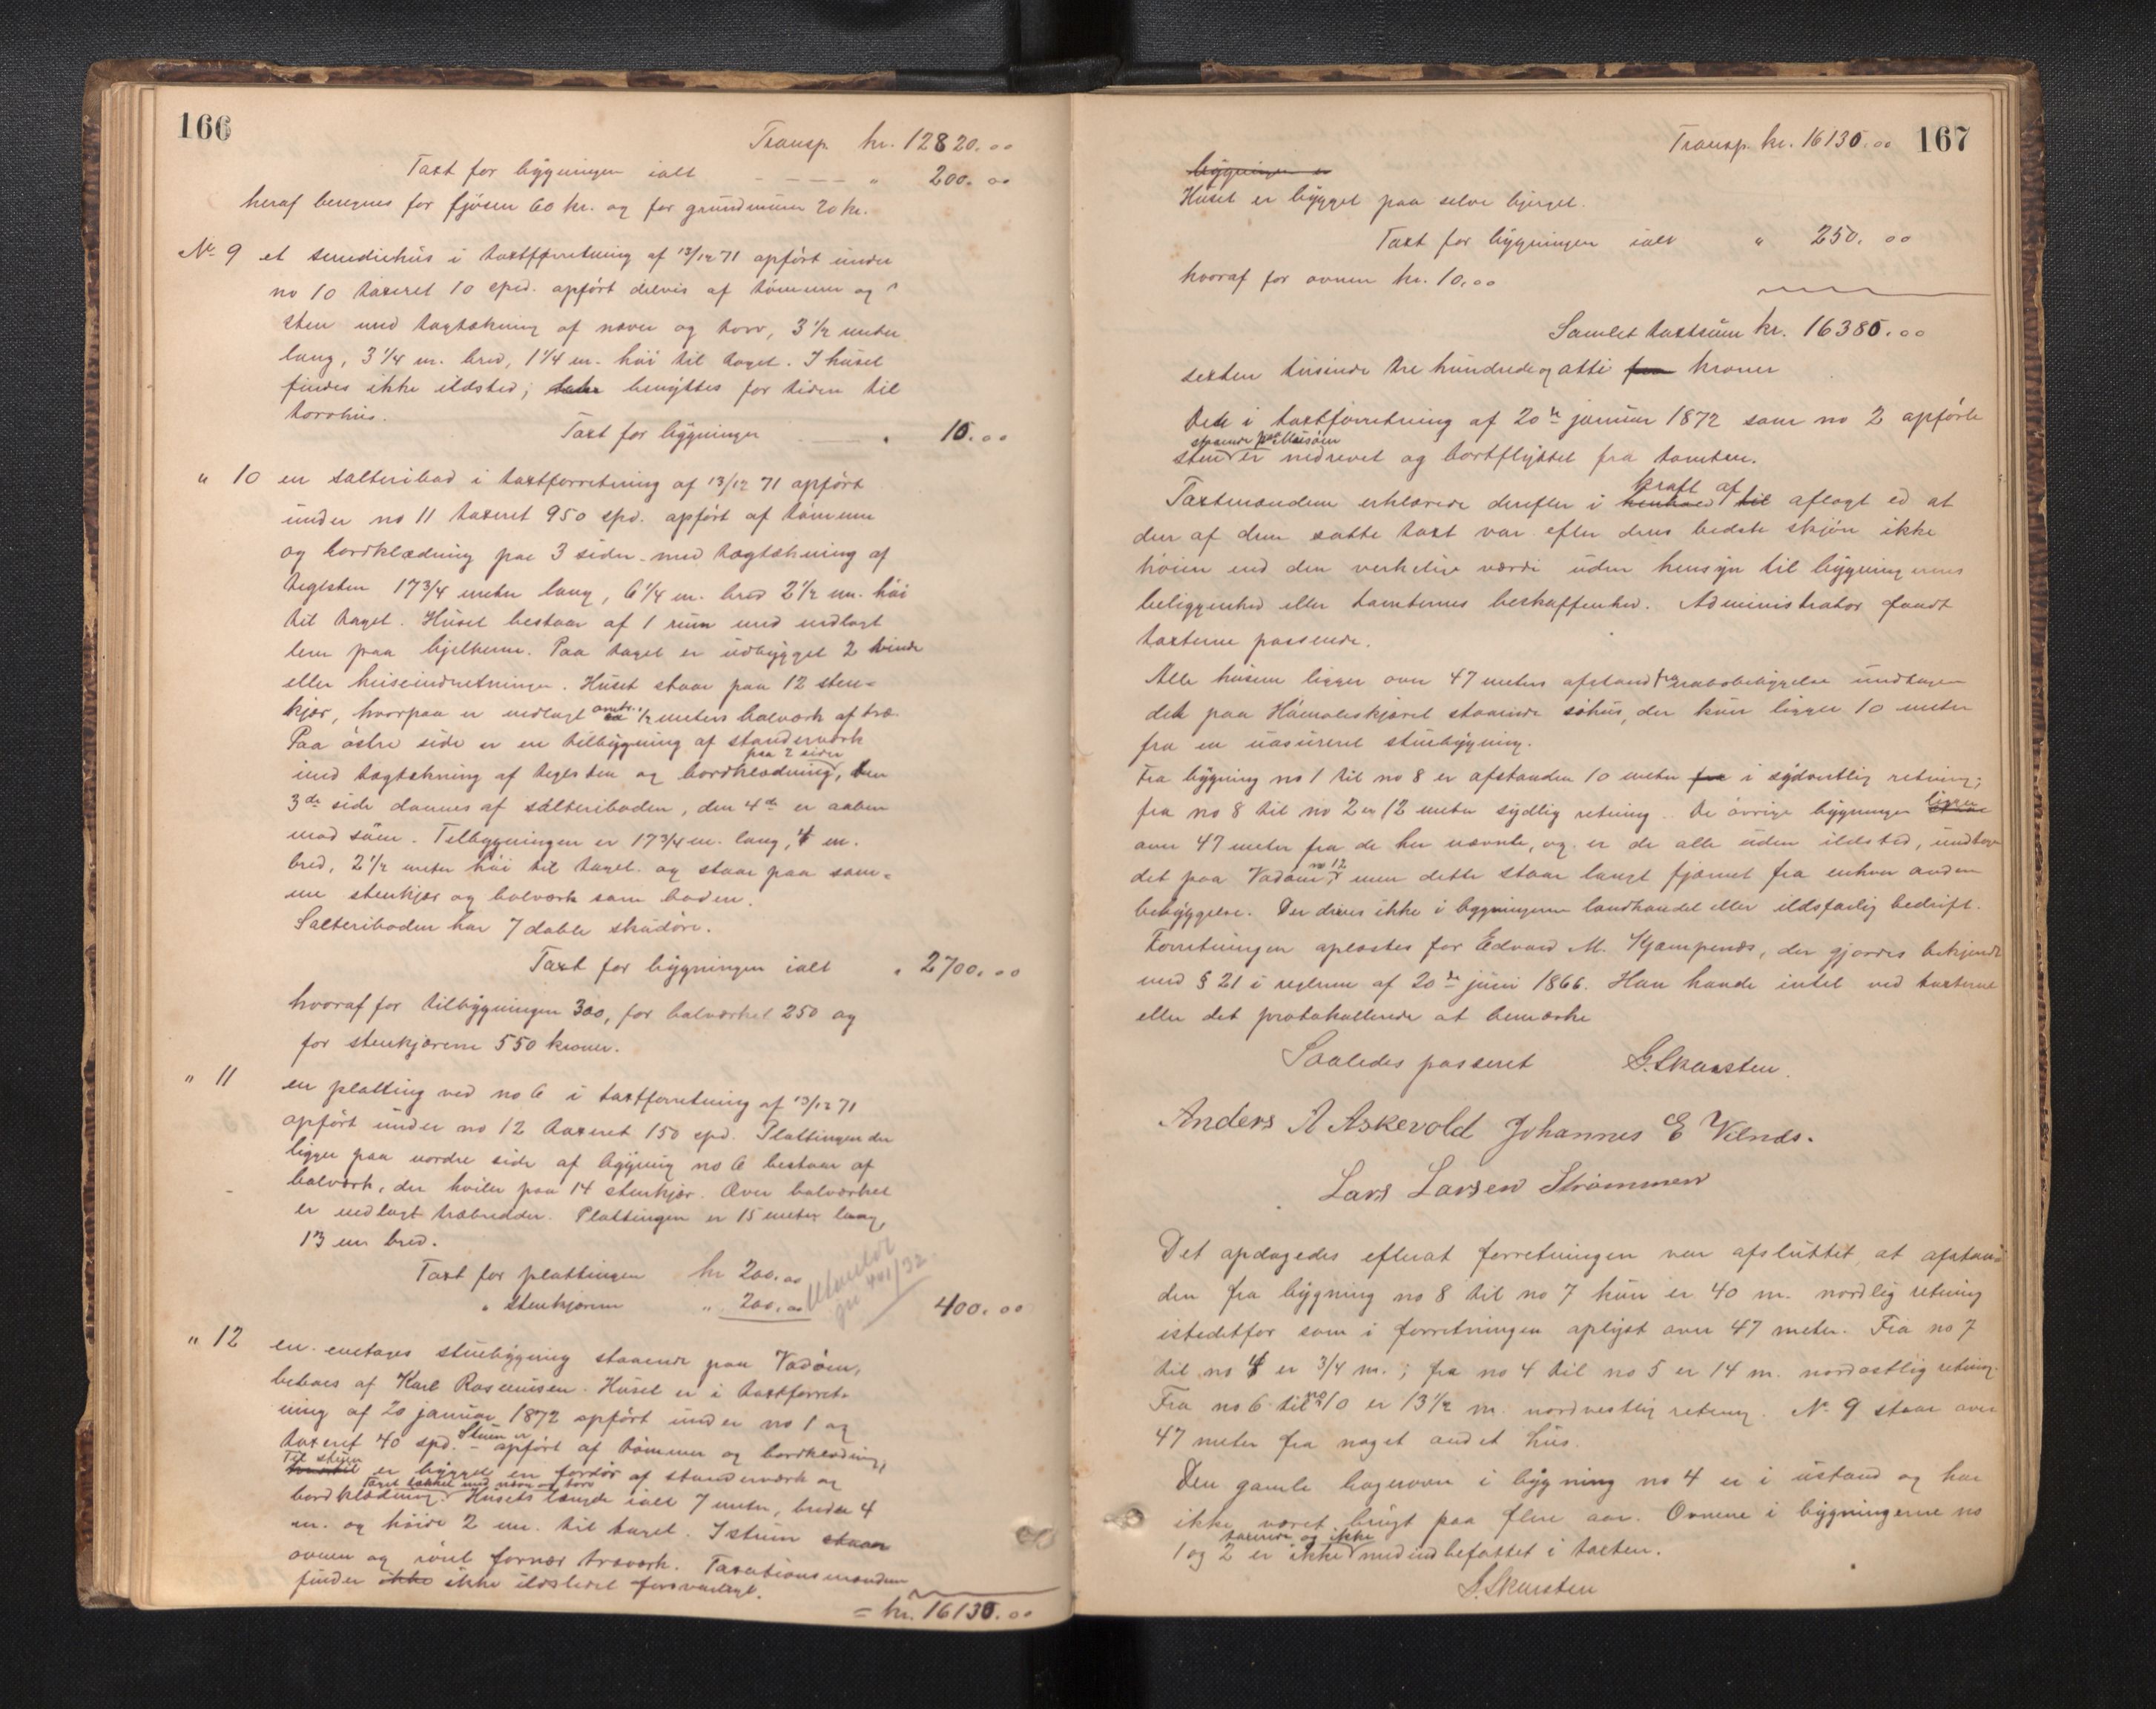 166
Transp. kr. 12820.00
Taxt for bygningen ialt " 200.00
heraf beregnes for fjøsen 60 kr. og for grundmuren 20 kr.
No 9 et smediehus i taxtforretning af 13/12 71 opført under
no 10 taxeret 10 spd. opført delvis af tømmer og
sten med tagtækning af næver og torv, 3 1/2 meter
lang, 3 1/4 m. bred, 1 1/4 m. høi til taget. I huset
findes ikke ildsted; benyttes for tiden til
torvhus.
Taxt for bygningen " 10.00
" 10 en salteribod i taxtforretning af 13/12 71 opført
under no 11 taxeret 950 spd. opført af tømmer
og bordklædning paa 3 sider med tagtækning af
teglsten 17 3/4 meter lang, 6 1/4 m. bred 2 1/2 m. høi
til taget. Huset bestaar af 1 rum med indlagt
lem paa bjelkerne. Paa taget er udbygget 2 vinde
eller heiseindretninger. Huset staar paa 12 sten-
kjær, hvorpaa er indlagt omtr. 1/2 meters bolværk af træ.
Paa østre side er en tilbygning af standerværk
paa 2 sider
med tagtækning af teglsten og bordklædning, den
3de side dannes af salteriboden, den 4de er aaben
mod søen. Tilbygningen er 17 3/4 m. lang, 4 m.
bred, 2 1/2 meter høi til taget og staar paa sam-
me stenkjær og bolværk som boden.
Salteriboden har 7 doble skudøre.
Taxt for bygningen ialt " 2700.00
hvoraf for tilbygningen 300, for bolværket 250 og
for stenkjærene 550 kroner.
" 11 en platting ved no 6 i taxtforretning af 13/12 71
opført under no 12 taxeret 150 spd. Plattingen der
ligger paa nordre side af bygning no 6 bestaar af
bolværk, der hviler paa 14 stenkjær. Over bolværket
er indlagt træbredder. Plattingen er 15 meter lang,
13 m bred.
Taxt for plattingen kr 200.00
" stenkjærene " 200.00 400.00
" 12 en enetages stuebygning staaende paa Vadøen,
beboes af Karl Rasmussen. Huset er i taxtforret-
ning af 20 januar 1872 opført under no 1 og
taxeret 40 spd. Stuen er opført af tømmer og bordklædning,
Til stuen er bygget en fordør af standerværk og
Taget tækket med næver og torv
bordklædning. Husets længde ialt 7 meter, bredde 4
m. og høide 2 m. til taget. I stuen staar
ovnen og røret fornær træværk. Taxationsmændene
finder ikke ikke ildstedet forsvarligt.
= kr. 16130.00
167
Transp. kr. 16130.00
bygningen er
Huset er bygget paa selve bjerget.
Taxt for bygningen ialt " 250.00
hvoraf for ovnen kr. 10.00
Samlet taxtsum kr. 16380.00
sexten tusinde tre hundrede og otti kroner
Det i taxtforretning af 20de januar 1872 som no 2 opførte
staaende paa
sten er nedrevet og bortflyttet fra tomten.
kraft af
Taxtmændene erklærede derefter i henhold til aflagt ed at
den af dem satte taxt var efter deres bedste skjøn ikke
høiere end den verkelige værdi uden hensyn til bygningernes
beliggenhed eller tomternes beskaffenhed. Administrator fandt
taxterne passende.
Alle husene ligger over 47 meters afstand fra nabobebyggelse undtagen
det paa Hamoleskjæret staaende søhus, der kun ligger 10 meter
fra en uasureret stuebygning.
Fra bygning no 1 til no 8 er afstanden 10 meter fra i sydvestlig retning;
fra no 8 til no 2 er 12 meter sydlig retning. De øvrige bygninger ligger
over 47 meter fra de her nævnte, og er de alle uden ildsted, undtagen
det paa Vadøen no 12, men dette staar langt fjernet fra enhver anden
bebyggelse. Der drives ikke i bygningerne landhandel eller ildsfarlig bedrift.
Forretningen oplæstes for Edvard M. Kjempenæs, der gjordes bekjendt
med § 21 i reglerne af 20de juni 1866. Han havde intet ved taxterne
eller det protokollerede at bemærke
Saaledes passeret G. Skarsten.
Anders A Askevold Johannes E Vilnæs.
Lars Larsen Strømmen
Det opdagedes efterat forretningen var afsluttet, at afstan-
den fra bygning no 8 til no 7 kun er 40 m. nordlig retning
istedetfor som i forretningen oplyst over 47 meter. Fra no 7
til no 4 er 3/4 m.; fra no 4 til no 5 er 14 m. nordostlig retning.
Fra no 6 til no 10 er 13 1/2 m. nordvestlig retning. No 9 staar over
47 meter fra noget andet hus.
Den gamle bagerovn i bygning no 4 er i ustand og har
ikke været brugt paa flere aar. Ovnene i bygningerne no
taxerede og ikke
1 og 2 er ikke medindbefattet i taxten.
G. Skarsten